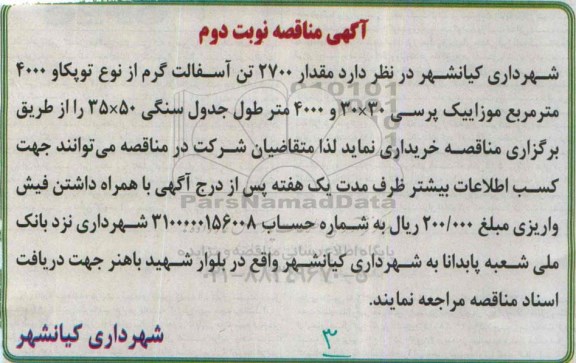 آگهی مناقصه نوبت دوم
شهرداری کیانشهر در نظر دارد مقدار ۲۷۰۰ تن آسفالت گرم از نوع توپکاو ۴۰۰۰
مترمربع موزاییک پرسی ۳۰×۳۰ و ۴۰۰۰ متر طول جدول سنگی ۵۰×۳۵ را از طریق
برگزاری مناقصه خریداری نماید لذا متقاضیان شرکت در مناقصه می‌توانند جهت
کسب اطلاعات بیشتر ظرف مدت یک هفته پس از درج آگهی با همراه داشتن فیش
واریزی مبلغ ۲۰۰/۰۰۰ ریال به شماره حساب ۳۱۰۰۰۰۰۱۵۶۰۰۸ شهرداری نزد بانک
ملی شعبه پابدانا به شهرداری کیانشهر واقع در بلوار شهید باهنر جهت دریافت
اسناد مناقصه مراجعه نمایند.
شهرداری کیانشهر
۳
ParsNamadData